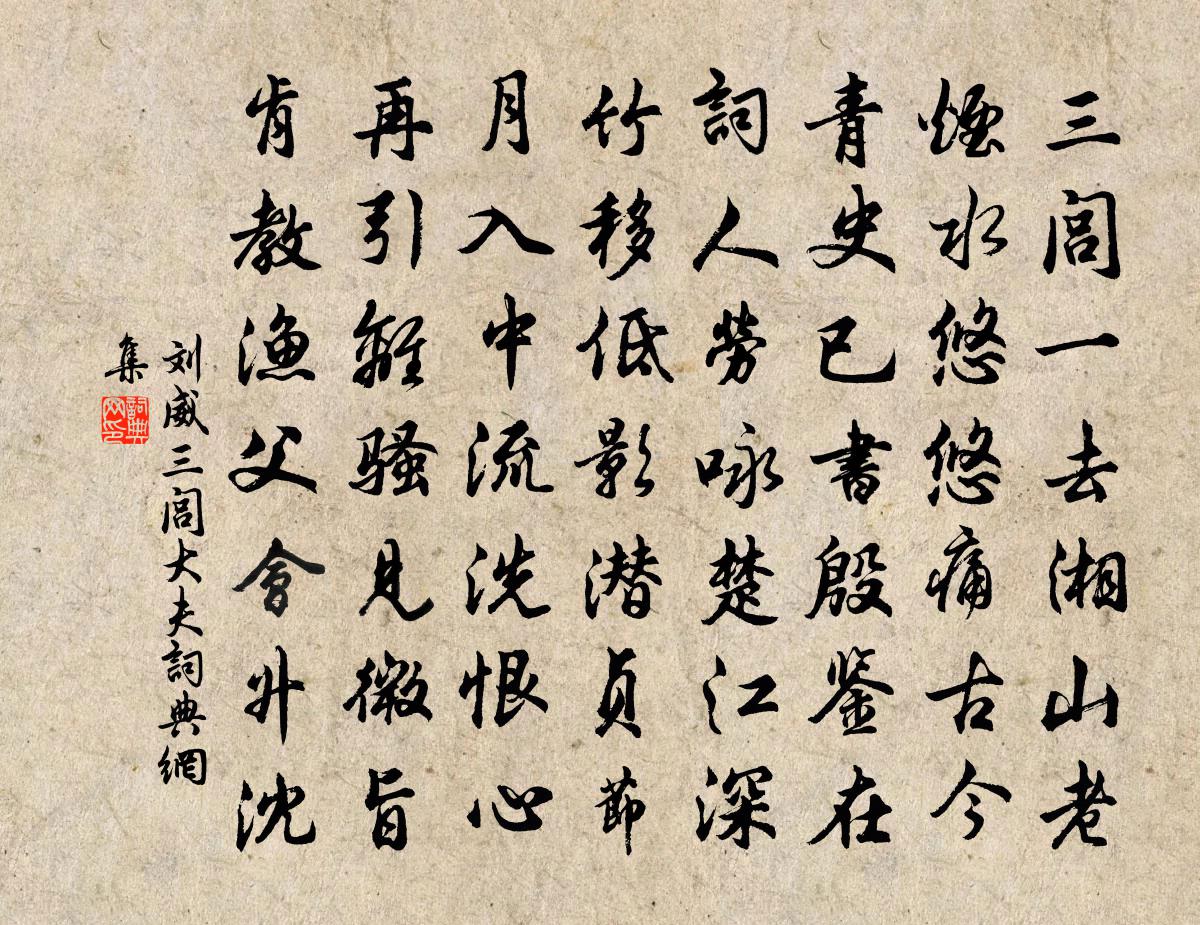 三闾一去湘山老
烟水悠悠痛古今
青史已書殷鉴在
詞人勞咏楚江深
竹移低影潜贞節
月入中流洗恨心
再引離騷見微旨
肯教漁父會升沈
刘威三闾大夫詞典網
集
詞典网印